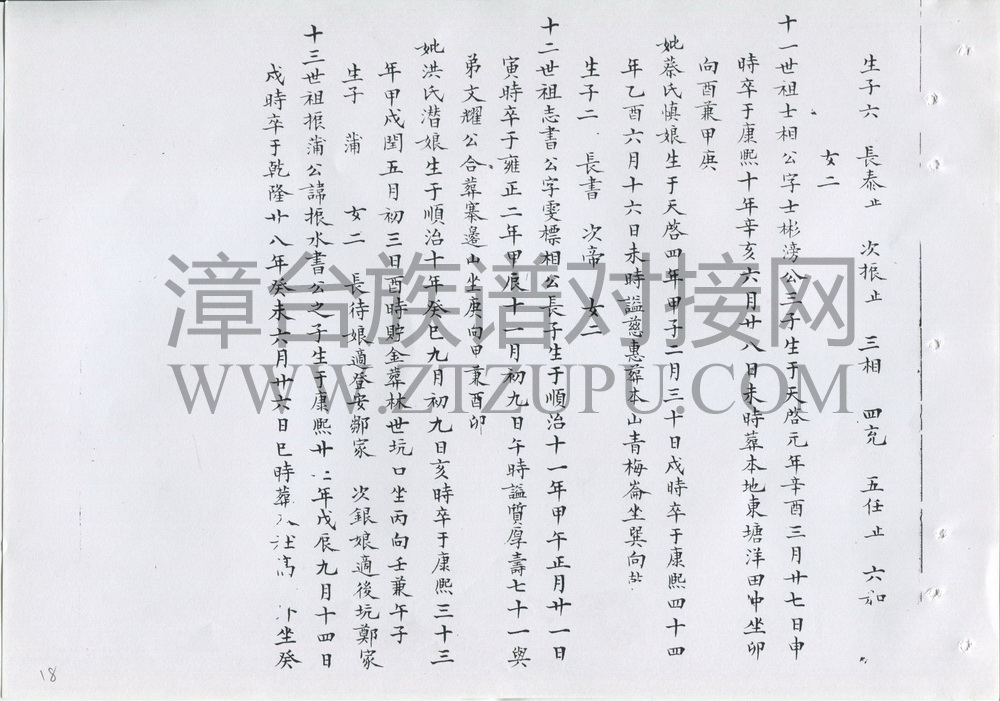 生子六 長泰止 次振止 三相 四充 五任止 六和
女二
十一世祖士相公字士彬滂公三子生于天啓元年辛酉三月廿七日申
時卒于康熙十年辛亥六月廿八日未時葬本地東塘洋田中坐卯
向酉兼甲庚
妣蔡氏慎娘生于天啓四年甲子二月三十日戌時卒于康熙四十四
年乙酉六月十六日未時謚慈惠葬本山青梅崙坐巽向
生子二 長書 次帝 女二
十二世祖志書公字雯標相公長子生于順治十一年甲午正月廿一日
寅時卒于雍正二年甲辰十一月初九日午時謚質厚壽七十一與
弟文耀公合葬寨邊山坐庚向甲兼酉卯
妣洪氏潛娘生于順治十年癸巳九月初九日亥時卒于康熙三十三
年甲戌閏五月初三日酉時貯金葬林世坑口坐丙向壬兼午子
生子 蒲 女二 長待娘適登安鄒家 次銀娘適後坑鄭家
十三世祖振蒲公諱振水書公之子生于康熙廿年戊辰九月十四日
戌時卒于乾隆廿八年癸未六月廿六日巳時葬坐癸
漳台族谱对接网
WWW.ZTZUPU.COM
18